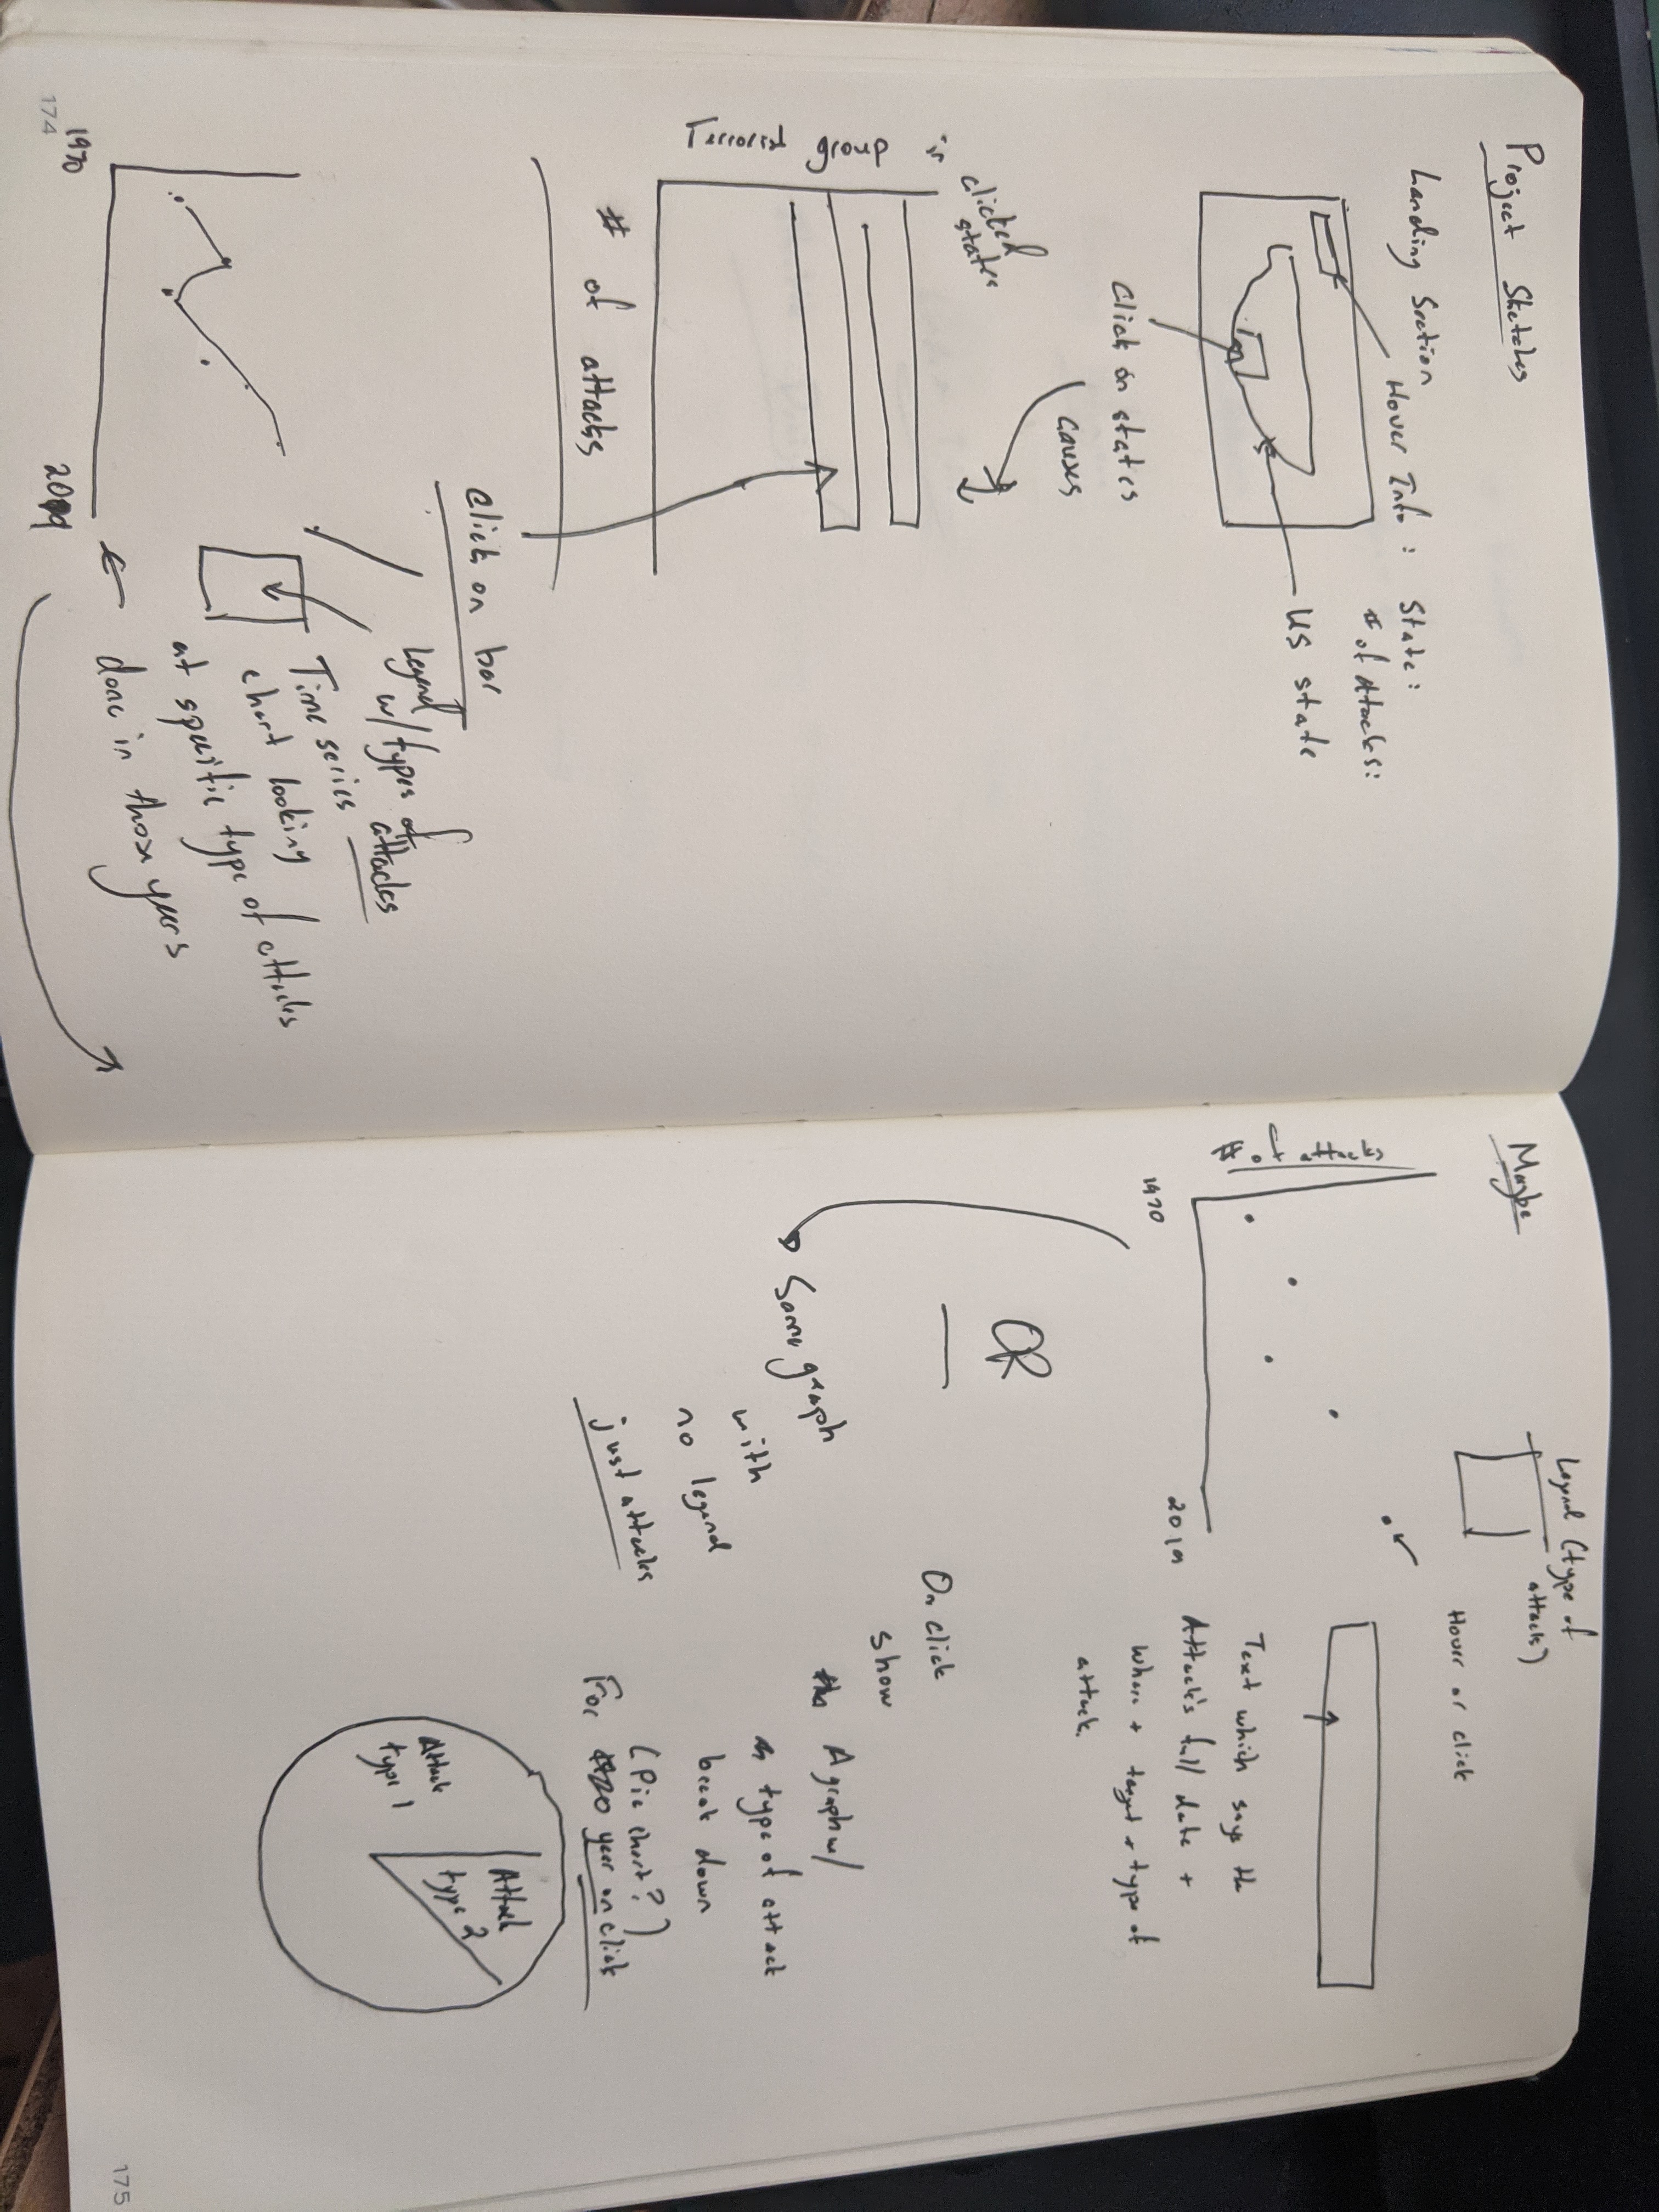 Project Sketches
Landing Section
Hover Info :
State:
# of attacks:
US state
Click on states
causes
clicked
states
Terrorist group in
# of attacks
Click on bar
Legend
w/ types of
attacks
Time series
chart looking
at specific type of attacks
done in those years
1970
2019
174
Maybe
Legend (type of
attacks)
Hover or click
# of attacks
1970
2019
Text which says the
Attack's full date +
where + target + type of
attack.
OR
Same graph
with
no legend
just attacks
On click
show
A graph w/
type of attack
break down
(Pie chart?)
For year on click
Attack
type 1
Attack
type 2
175